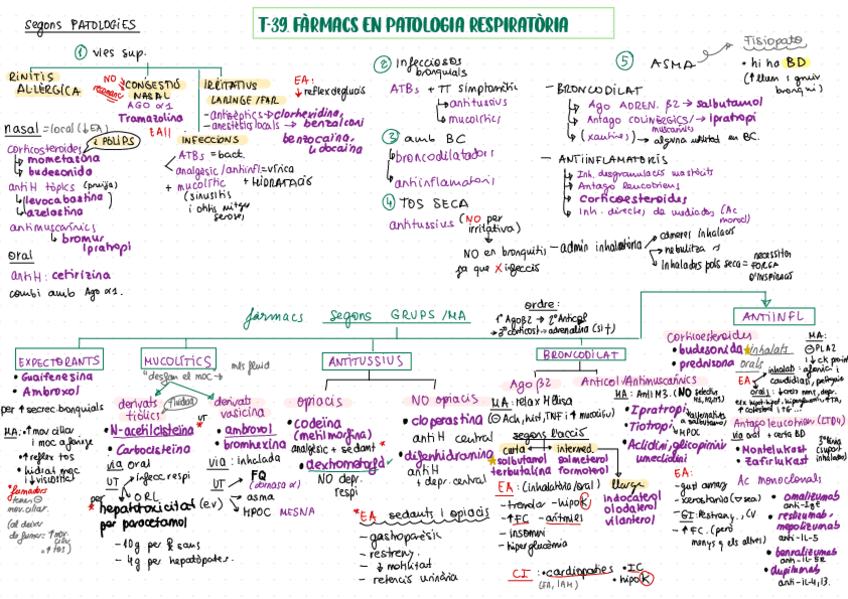 T-39. FÀRMACS EN PATOLOGIA RESPIRATÒRIA
segons PATOLOGIES
① vies sup.
RINITIS AL·LÈRGICA
nasal = local (↓EA)
corticosteroides
mometasona
budesonida
i PÒLIPS
antiH tòpics (pruïja)
levocabastina
azelastina
antimuscarínics
bromur ipratropi
oral
antiH: cetirizina
combi amb Ago α1.
CONGESTIÓ NASAL
NO
AGO α1
Tramazolina
EA!!
IRRITATIUS LARINGE/FAR.
- antisèptics → clorhexidina,
benzalconi
- anestèsics locals →
benzocaïna,
lidocaïna
EA:
↓ reflex deglució
INFECCIONS
ATBs = bact.
analgesic/antiinfl = vírica
+ mucolític + HIDRATACIÓ
(sinusitis
i otitis mitja
serosa)
② Infecciosos bronquials
ATBs + TT simptomàtic
antitussius
mucolítics
③ amb BC
broncodilatadors
antiinflamatoris
④ TOS SECA
antitussius (NO per
irritativa)
NO en bronquitis
ja que X infecció
⑤ ASMA
Fisiopato
• hi ha BD
(↑ llum i gruix
bronqui)
- BRONCODILAT
Ago ADREN. β2 → salbutamol
Antago COLINÈRGICS/muscarínics → ipratropi
(xantines) → alguna utilitat en BC.
- ANTIINFLAMATORIS
Inh. desgranulació mastòcits
Antago leucotriens
corticoesteroides
Inh. directes de mediadors (Ac
monocl)
- admin inhalatòria
càmeres inhalació
nebulitza
Inhaladors pols seca = necessiten
FORÇA
D'INSPIRACIÓ
fàrmacs segons GRUPS/MA
ordre:
1º Ago β2 → 2º Anticol
→ 3º corticost → adrenalina (si †)
EXPECTORANTS
• Guaifenesina
• Ambroxol
per ↑ secrec bronquials
MA: • ↑ mov ciliar
i moc a faringe
• ↑ reflex tos
• hidrat moc
↓ viscositat
*fumadors
mov. ciliar.
MUCOLÍTICS
"desfan el moc" → més fluid
derivats tiòlics
fluidos
derivats vasicina
UT
N-acetilcisteïna *
Carbocisteïna
via oral
UT
infecc respi
O.R.L
*per hepatotoxicitat (ev)
per paracetamol
- 10g per ♀ sans
- 4g per hepatòpates.
ambroxol
bromhexina
via: inhalada
UT
FQ
(dornasa α)
asma
MPOC MESNA
ANTITUSSIUS
OPIACIS
codeïna
(metilmorfina)
analgèsic + sedant *
• dextrometorfà
NO depr.
respi
NO opiacis
• cloperastina
antiH central
• difenhidramina
antiH
+ depr. central
*EA sedants i opiacis
- gastroparèsia
- restreny.
- ↓ motilitat
- retenció urinària
BRONCODILAT
Ago β2
MA: relax M.llisa
⊖ Ach, hist, TNF; ↑ mucociliar
segons l'acció
curta
intermed.
llarga
salbutamol
terbutalina
salmeterol
formoterol
indacaterol
olodaterol
vilanterol
EA: (inhalatòria/oral)
- tremolor - hipoK
- ↑FC - arítmies
- insomni
- hiperglucèmia
CI: • cardiopaties • IC
(FA, IAM) • hipoK
Anticol/Antimuscarínics
MA: Anti M3. (NO selectiu
M1, M2)
• Ipratropi
• Tiotropi
alternatives
a salbutamol
MPOC
• Aclidini, glicopirroni
umeclidini
EA:
- gust amarg
- xerostomia
- GI: Restreny., CV
- ↑ FC. (però
menys q els altres)
ANTIINFL
corticoesteroides
• budesonida inhalats
• prednisona orals
MA:
⊖ PLA2
EA
inhalats: afonia i
candidiasi, faringitis
orals:
↑ colesterol i TG...
Antago leucotriens (LTD4)
via oral + certa BD
• Montelukast
• Zafirlukast
3ª línia
(suport
inhalador)
Ac monoclonals
• omalizumab
anti-IgE
• reslizumab,
mepolizumab
anti-IL-5
• benralizumab
anti-IL-5R
• dupilumab
anti-IL-4,13.